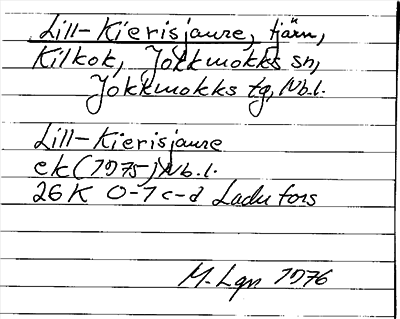 Lill-Kierisjaure, tjärn,
Kilkok, Jokkmokks sn,
Jokkmokks tg, Nb.l.
Lill-Kierisjaure
ek (1975) Nb.l.
26K 0-1 c-d Ladufors
M. Lgn 1976